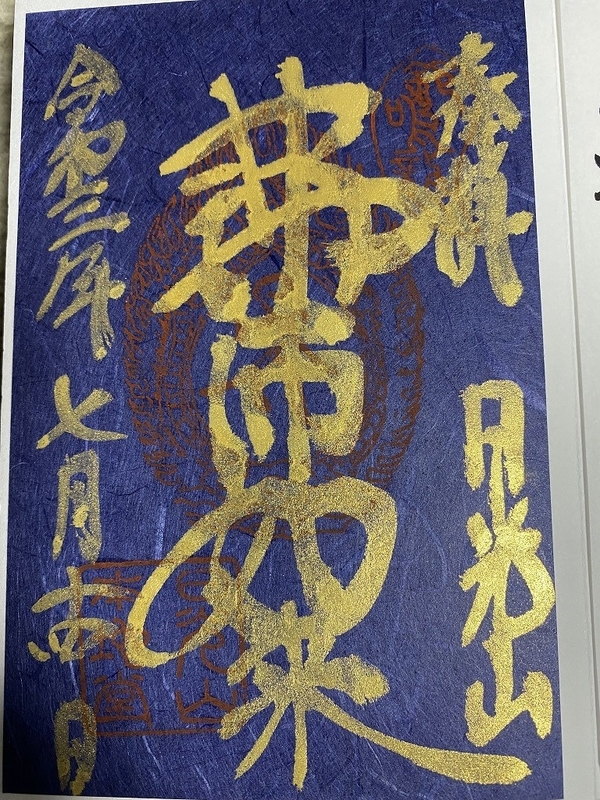 奉拝 日光山
薬師如来
令和三年 七月